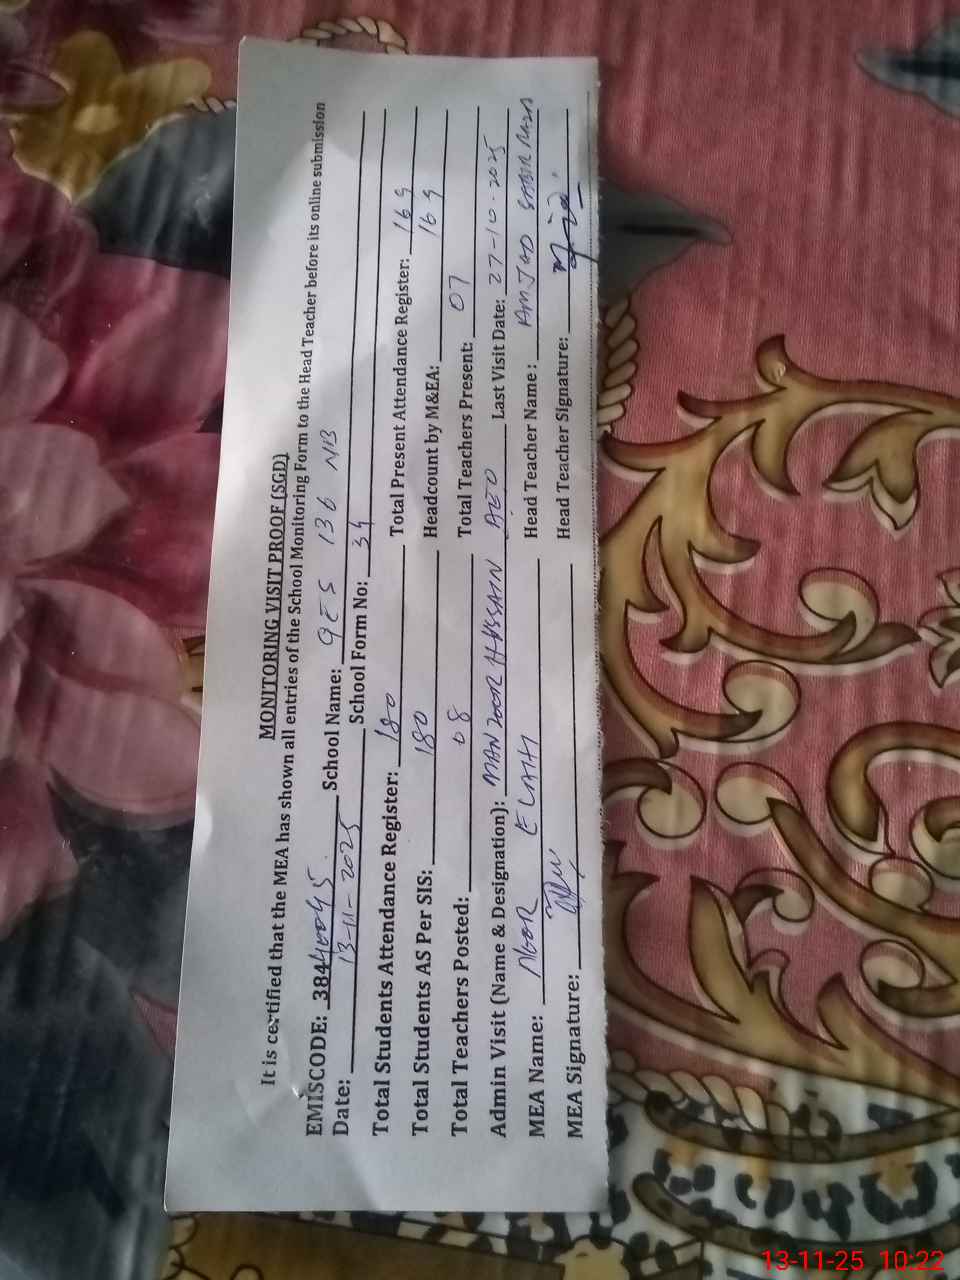 MONITORING VISIT PROOF (SGD)
It is certified that the MEA has shown all entries of the School Monitoring Form to the Head Teacher before its online submission
EMISCODE: 38440045 School Name: GES 136 NB
Date: 13-11-2025 School Form No: 34
Total Students Attendance Register: 180 Total Present Attendance Register: 169
Total Students AS Per SIS: 180 Headcount by M&EA: 169
Total Teachers Posted: 08 Total Teachers Present: 07
Admin Visit (Name & Designation): MANZOOR HUSSAIN AEO Last Visit Date: 27-10-2025
MEA Name: NOOR ELAHI Head Teacher Name: AMJAD SABIR RAZA
MEA Signature: Head Teacher Signature:
13-11-25 10:22